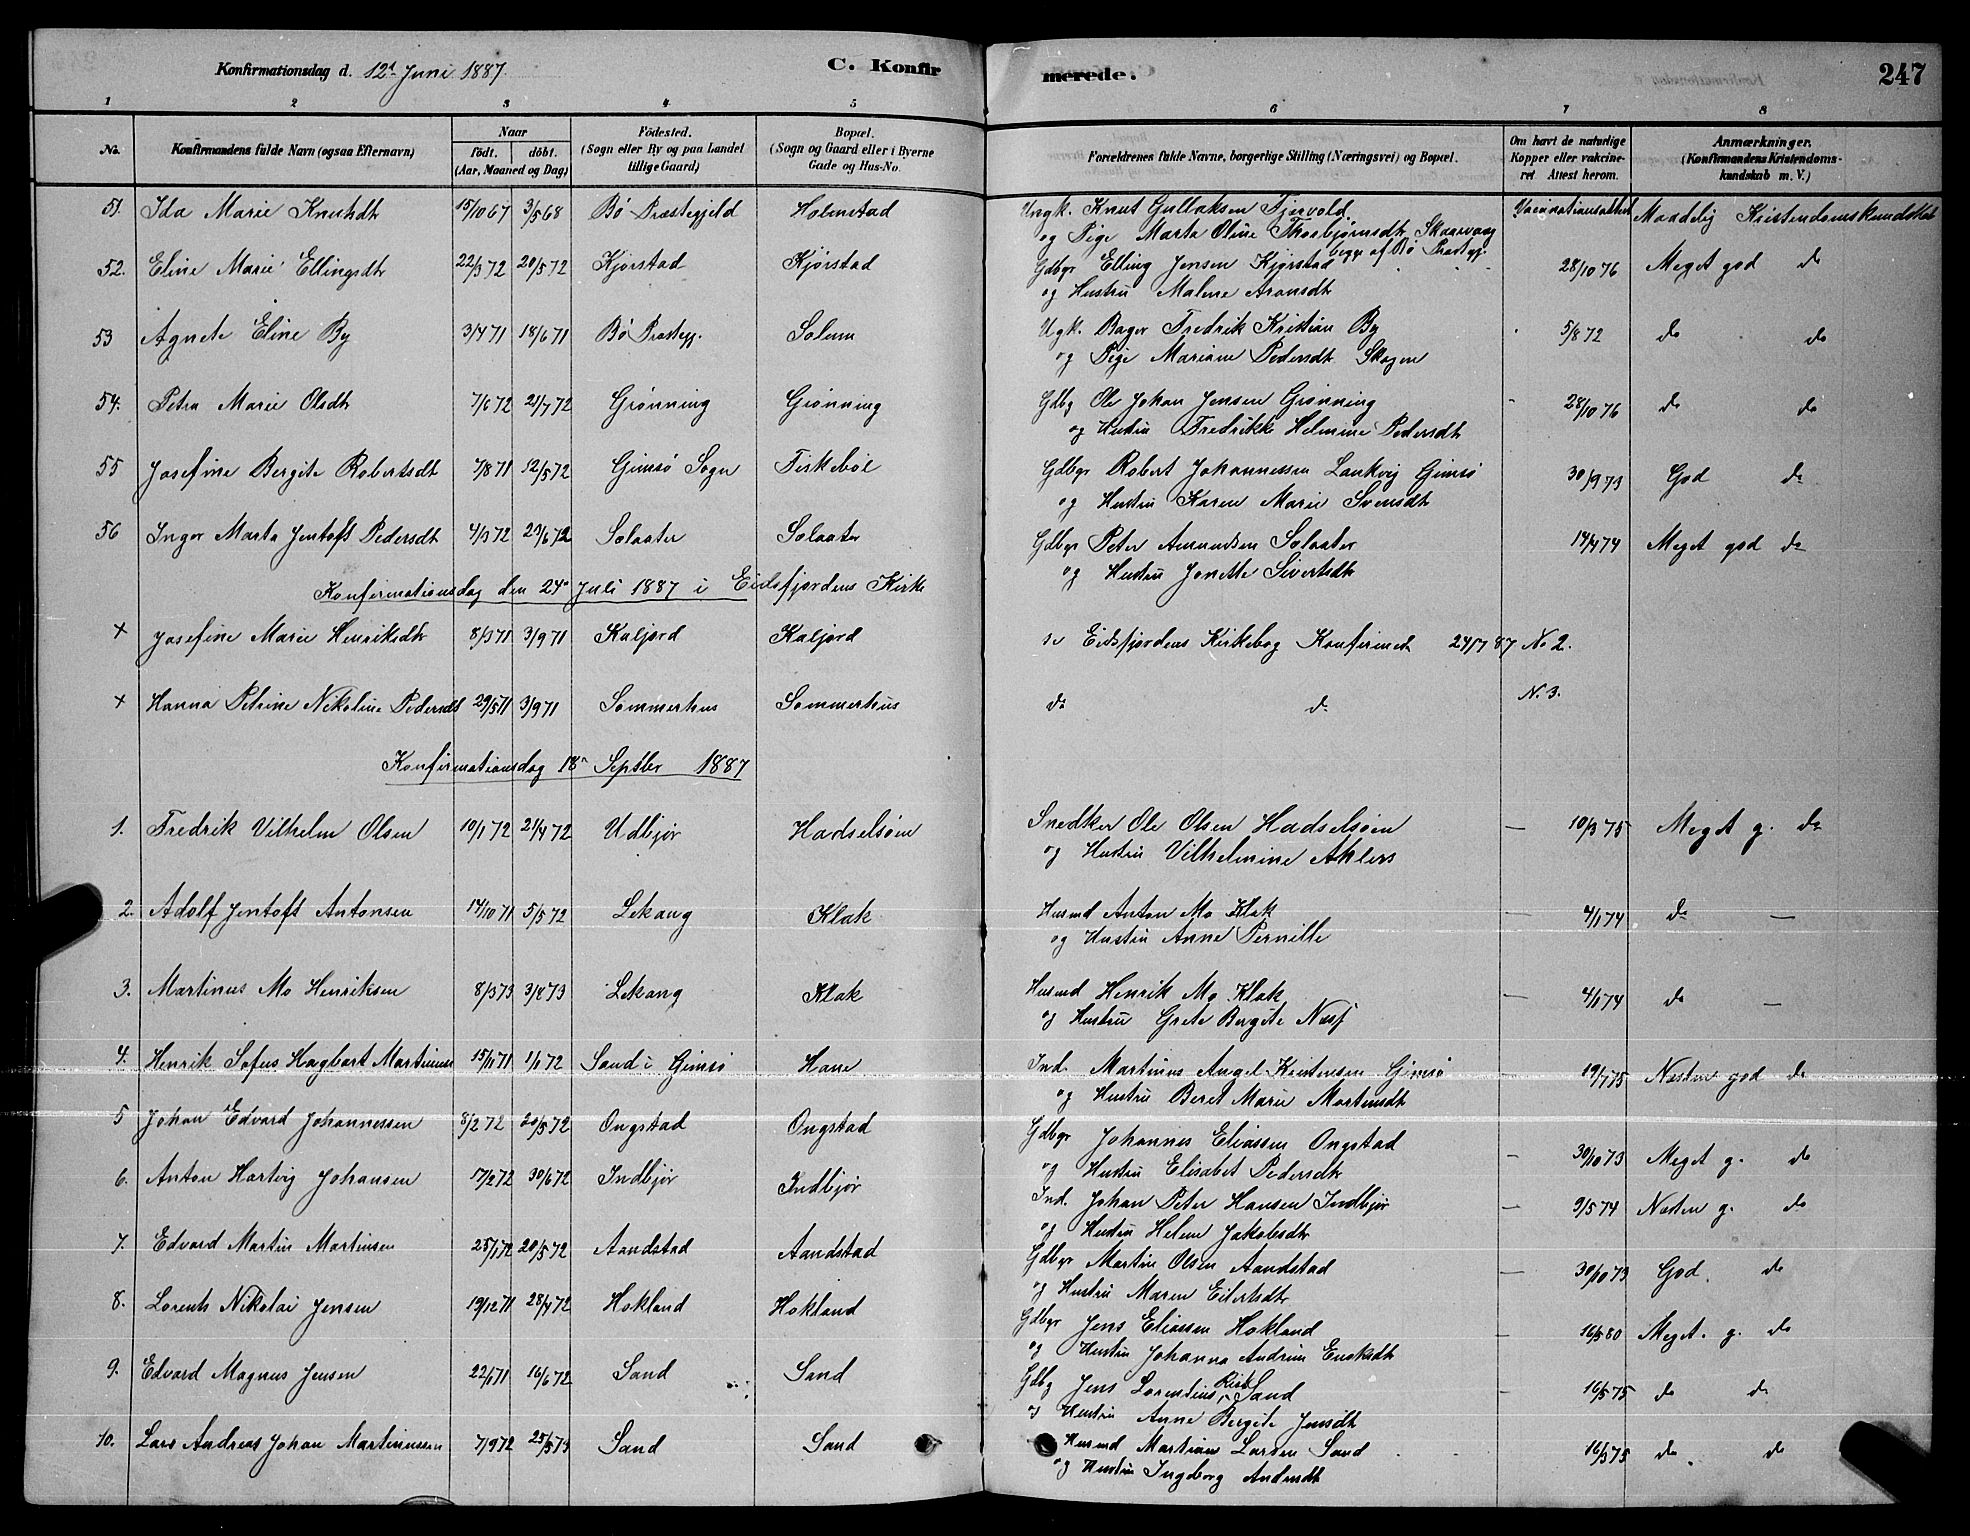 Konfirmationsdag d. 12t Juni 1887.
C. Konfirmerede.
247
1 2 3 4 5 6 7 8
No.
Konfirmandens fulde Navn (ogsaa Efternavn)
Naar
født. døbt.
(Aar, Maaned og Dag)
Födested.
(Sogn eller By og paa Landet
tillige Gaard)
Bopæl.
(Sogn og Gaard eller i Byerne
Gade og Hus-No.
Forældrenes fulde Navne, borgerlige Stilling (Næringsvei) og Bopæl.
Om havt de naturlige
Kopper eller vakcine-
ret Attest herom.
Anmærkninger.
(Konfirmandens Kristendoms-
kundskab m. V.)
51. Ida Marie Knutsdt 15/10 67 3/5 68 Bö Præstegjeld Holmstad Ungk. Knut Gullaksen Fjervold Vaccinationsattest Maadelig Kristendomskundskab
og Pige Marta Oline Thorbjörnsdt Skaarvaag
begge af Bö Præstgj.
52. Eline Marie Ellingsdt 22/3 72 20/5 72 Kjörstad Kjörstad Gdbgr Elling Jensen Kjörstad 28/10 76 Meget god do
og Hustru Malene Aronsdt
53 Agnete Eline By 3/4 71 18/6 71 Bö Præstegj. Solem Ugk. Bager Fredrik Kristian By 5/8 72 do do
og Pige Mariane Pedersdt Skagen
54. Petra Marie Olsdt 7/6 72 21/7 72 Grönning Grönning Gdbg Ole Johan Jensen Grönning 28/10 76 do do
og Hustru Fredrikke Helmine Pedersdt
55 Josefine Bergite Robertsdt 7/8 71 12/5 72 Gimsö Sogn Firkeböl Gdbgr Robert Johannessen Laukvig Gimsö 30/9 73 God do
og Hustru Karen Marie Svensdt
56 Inger Marta Jentoft Pedersdt 4/3 72 29/6 72 Solaater Solaater Gdbgr Peter Amundsen Solaater 14/4 74 Meget god do
og Hustru Jonette Sivertsdt
Konfirmationsdag den 24de Juli 1887 i Eidsfjordens Kirke
+ Josefine Marie Henriksdt 8/3 71 3/9 71 Kaljord Kaljord se Eidsfjordens Kirkebog Konfirmet 24/7 87 No 2.
+ Hanna Petrine Nikoline Pedersdt 29/5 71 3/9 71 Sommerhus Sommerhus do d. N. 3.
Konfirmationsdag 18de Septbr 1887
1. Fredrik Vilhelm Olsen 10/1 72 21/4 72 Udbjör Hadselsöen Snedker Ole Olsen Hadselsöen — 10/3 75 Meget g. do
og Hustru Vilhelmine Ahlers
2. Adolf Jentoft Antonsen 14/10 71 5/5 72 Lekang Klak Husmd Anton Mo Klak — 4/1 74 do —
og Hustru Anne Pernille
3. Martinus Mo Henriksen 8/3 73 3/8 73 Lekang Klak Husmd Henrik Mo Klak — 4/1 74 do —
og Hustru Grete Bergite Næss
4. Henrik Sofus Hagbart Martinusen 15/11 71 1/1 72 Sand i Gimsö Hane Ind. Martinus Angel Kristensen Gimsö 19/7 75 Næsten god do
og Hustru Beret Marie Martinsdt
5 Johan Edvard Johannessen 8/2 72 20/5 72 Ongstad Ongstad Gdbgr Johannes Eliassen Ongstad — 30/10 73 Meget g. do
og Hustru Elisabet Pedersdt
6. Anton Hartvig Johansen 17/2 72 30/6 72 Indbjör Indbjör Ind. Johan Peter Hansen Indbjör — 9/5 74 Næsten g. do
og Hustru Helene Jakobsdt
7. Edvard Martin Martinsen 25/1 72 20/5 72 Aandstad Aandstad Gdbgr Martin Olsen Aandstad — 30/10 73 God. do
og Hustru Maren Eilertsdt
8. Lorents Nikolai Jensen 19/12 71 28/4 72 Hokland Hokland Gdbgr Jens Eliassen Hokland — 16/5 80 Meget. g. do
og Hustru Johanna Andrine Enoksdt
9. Edvard Magnus Jensen 22/1 71 16/6 72 Sand Sand Gdbg Jens Lorentius Sand — 16/5 75 do do
og Hustru Anne Bergite Jensdt
10. Lars Andreas Johan Martinussen 7/9 72 25/5 73 Sand Sand Husmd Martinus Larsen Sand 16/3 75 do do
og Hustru Ingeborg Andersdt